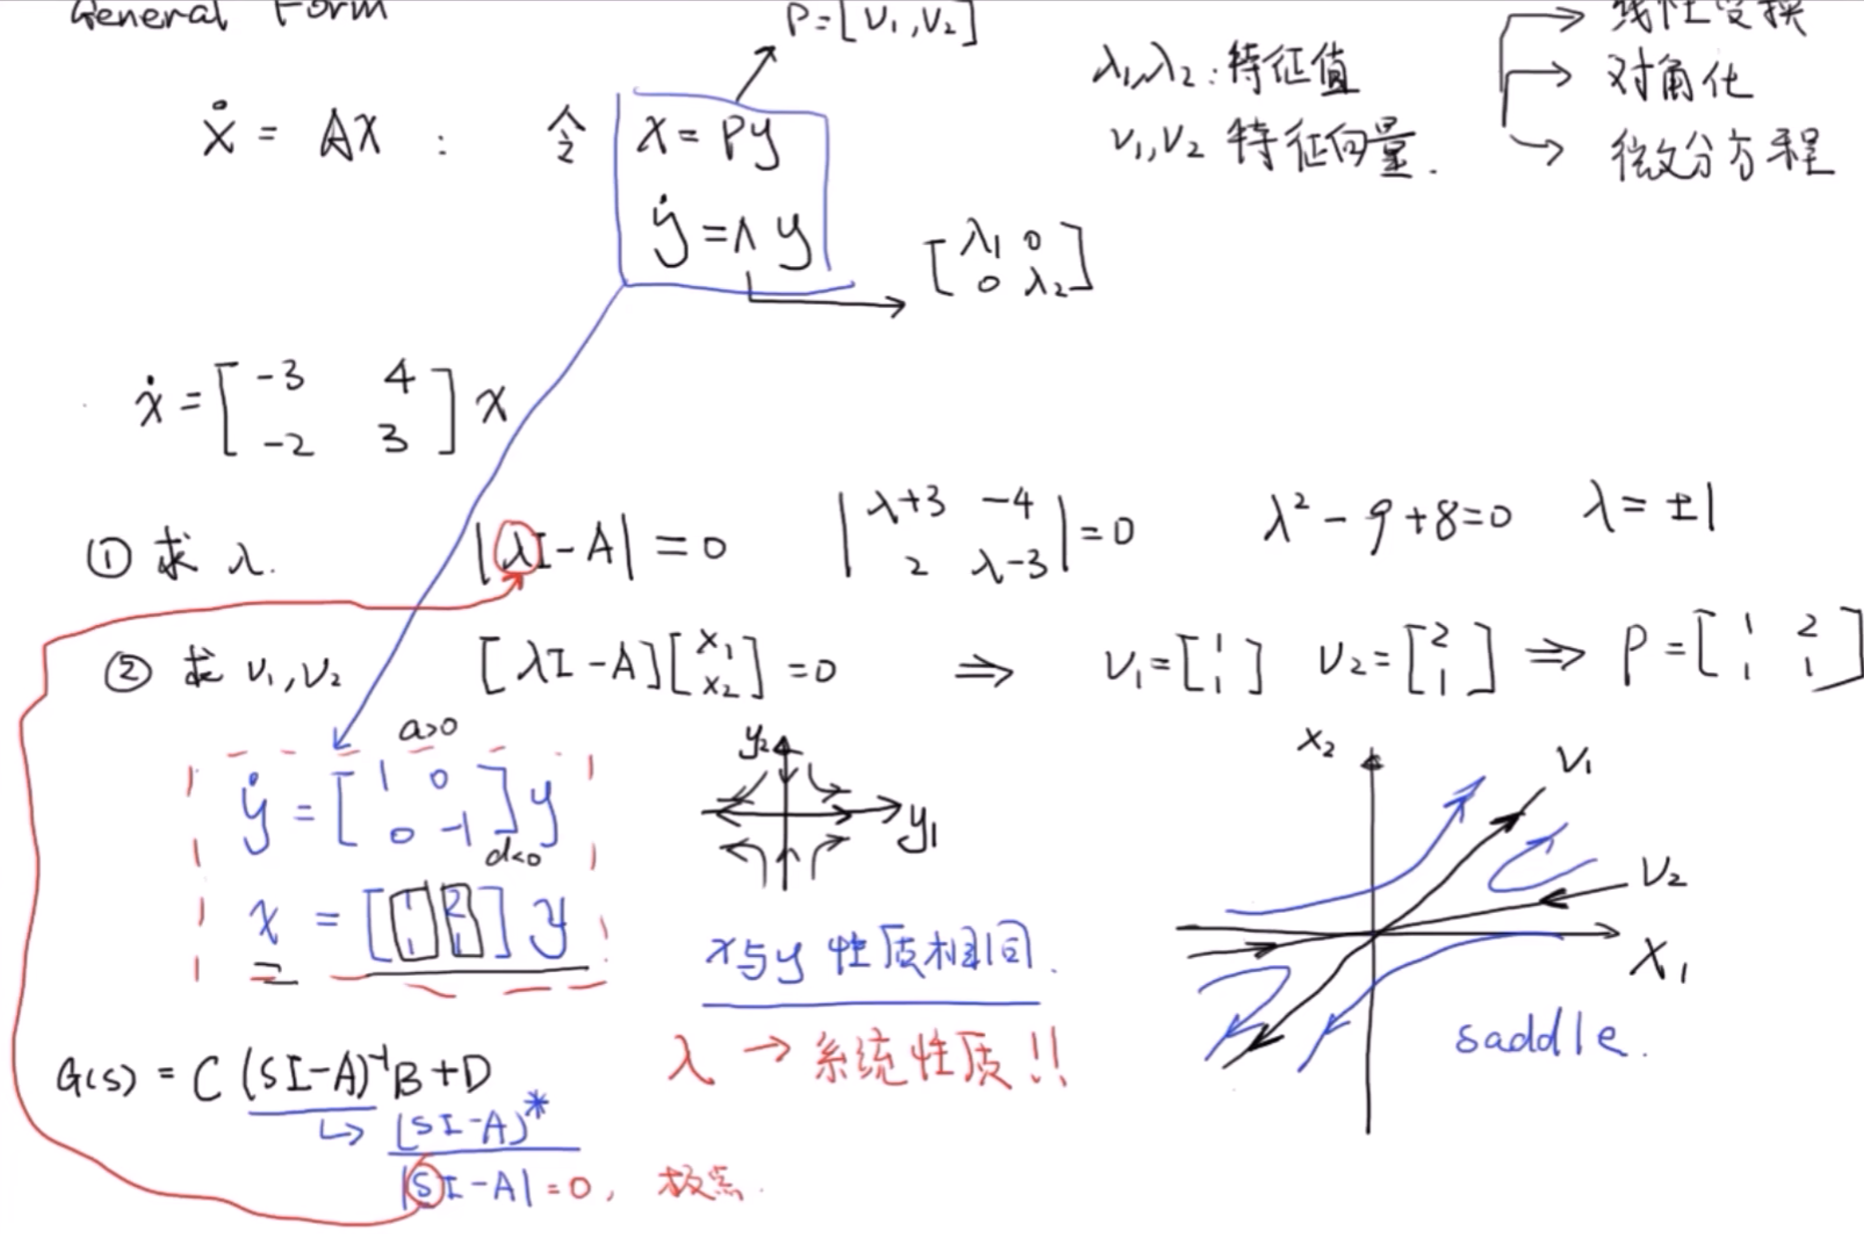 General Form
P=[V₁,V₂]
λ₁,λ₂:特征值
V₁,V₂ 特征向量.
线性变换
对角化
微分方程
ẋ = Ax : 令 x=Py
ẏ=Λy
[λ₁ 0
0 λ₂]
ẋ=[-3 4
-2 3]x
① 求 λ. |λI-A|=0 |λ+3 -4
2 λ-3|=0 λ²-9+8=0 λ=±1
② 求 V₁,V₂ [λI-A][x₁
x₂]=0 ⇒ V₁=[1
1] V₂=[2
1] ⇒ P=[1 2
1 1]
a>0
ẏ=[1 0
0 -1]y
d<0
x=[1 2
1 1]y
y₂
y₁
x与y 性质相同.
λ → 系统性质!!
x₂
V₁
V₂
X₁
saddle.
G(s) = C(SI-A)⁻¹B+D
↳ (SI-A)*
|SI-A|=0, 极点.